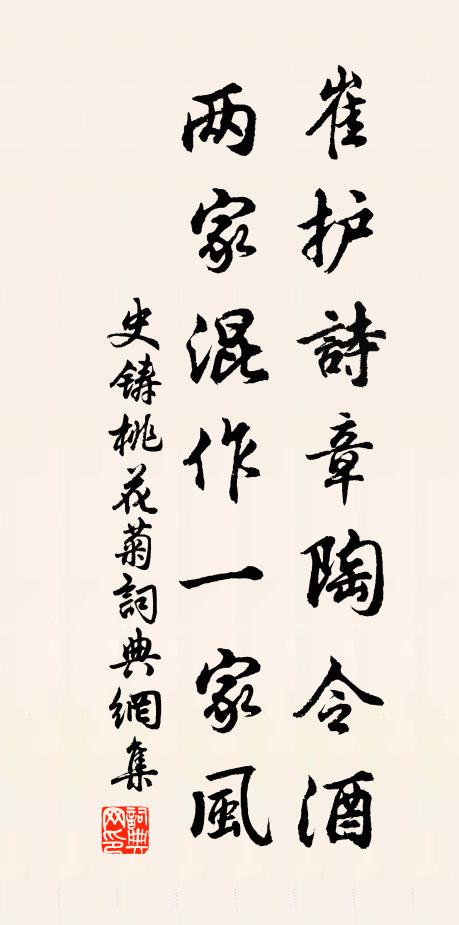 崔护詩章陶令酒
两家混作一家風
史鑄桃花菊詞典網集
詞典网印